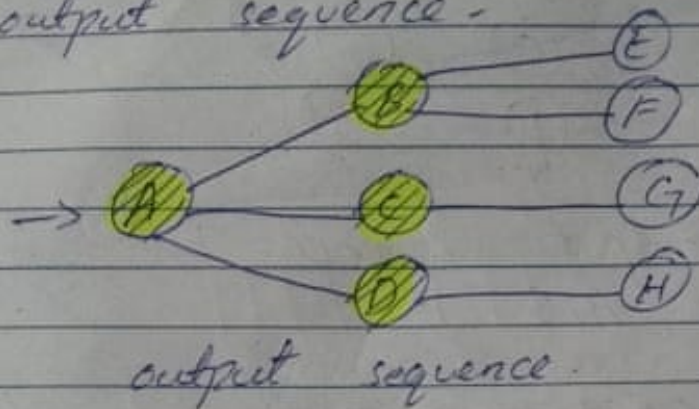 output sequence.
E
B
F
→ A C G
D H
output sequence.